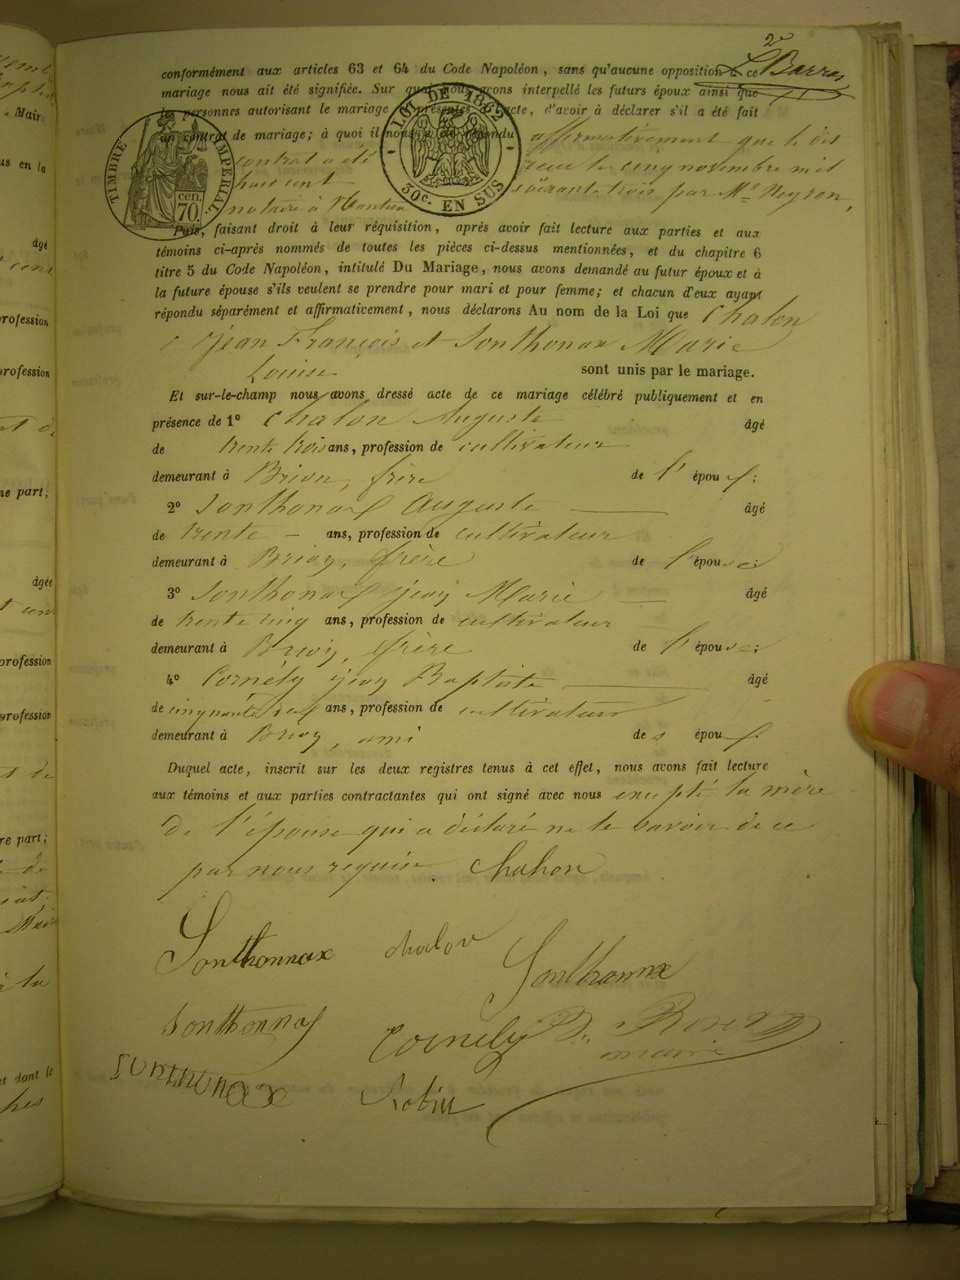 2e
L. Barras
conformément aux articles 63 et 64 du Code Napoléon, sans qu'aucune opposition à ce
mariage nous ait été signifiée. Sur quoi nous avons interpellé les futurs époux ainsi que
les personnes autorisant le mariage présentes à l'acte, d'avoir à déclarer s'il a été fait
un contrat de mariage; à quoi ils nous ont répondu affirmativement que le dit
contrat a été le cinq novembre mil
huit cent soixante trois par Me Neyron,
notaire à Nantua
TIMBRE IMPÉRIAL
70 cen.
LOI DE 1862
30c. EN SUS
Puis, faisant droit à leur réquisition, après avoir fait lecture aux parties et aux
témoins ci-après nommés de toutes les pièces ci-dessus mentionnées, et du chapitre 6
titre 5 du Code Napoléon, intitulé Du Mariage, nous avons demandé au futur époux et à
la future épouse s'ils veulent se prendre pour mari et pour femme; et chacun d'eux ayant
répondu séparément et affirmaticement, nous déclarons Au nom de la Loi que Chalon
Jean François et Sonthonax Marie
Louise sont unis par le mariage.
Et sur-le-champ nous avons dressé acte de ce mariage célébré publiquement et en
présence de 1º Chalon Auguste âgé
de trente trois ans, profession de cultivateur
demeurant à Brion, frère de l'époux;
2º Sonthonax Auguste âgé
de trente ans, profession de cultivateur
demeurant à Brion, frère de l'épouse;
3º Sonthonax Jean Marie âgé
de trente cinq ans, profession de cultivateur
demeurant à Brion, frère de l'épouse;
4º Cornély Jean Baptiste âgé
de cinquante neuf ans, profession de cultivateur
demeurant à Brion, ami des époux.
Duquel acte, inscrit sur les deux registres tenus à cet effet, nous avons fait lecture
aux témoins et aux parties contractantes qui ont signé avec nous excepté la mère
de l'épouse qui a déclaré ne le savoir de ce
par nous requise. Chalon
Sonthonnax chalon Sonthonnax
Sonthonnax Cornély B.
maire
Sonthonax Robin